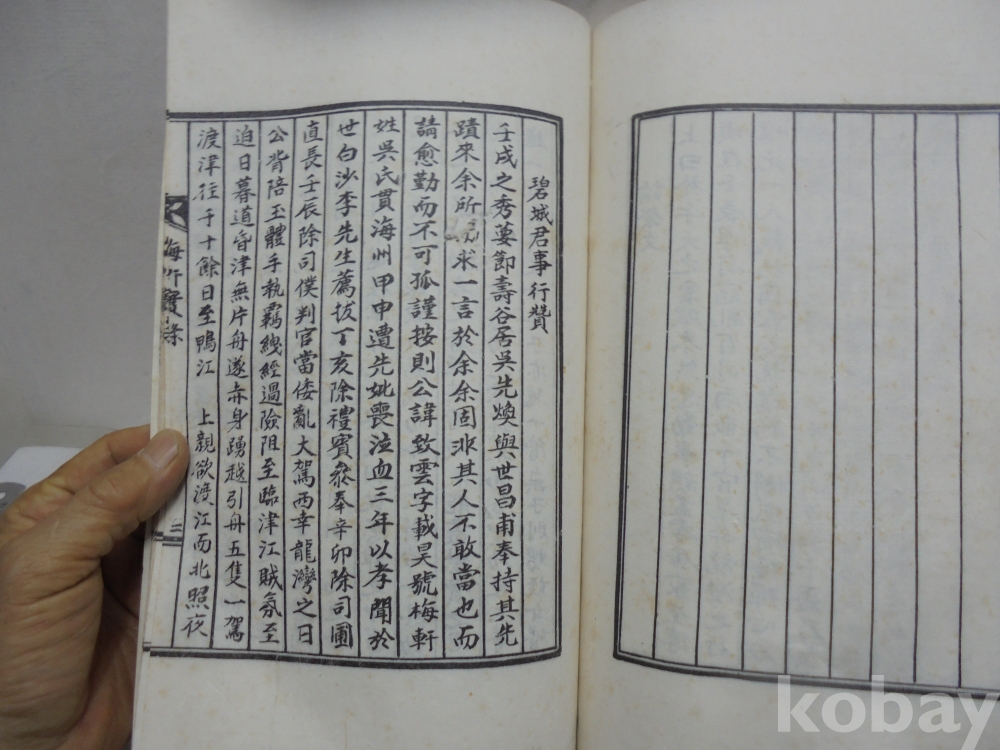 碧城君事行贊
壬戌之秀葽節壽谷居吳先煥與世昌甫奉持其先
蹟來余所求一言於余余固非其人不敢當也而
請愈勤而不可孤謹按則公諱致雲字載昊號梅軒
姓吳氏貫海州甲申遭先妣喪泣血三年以孝聞於
世白沙李先生薦拔丁亥除禮賓參奉辛卯除司圃
直長壬辰除司僕判官當倭亂大駕西幸龍灣之日
公背陪玉體手執羈絏經過險阻至臨津江賊氛至
迫日暮道昏津無片舟遂赤身踴越引舟五隻一駕
渡津往于十餘日至鴨江 上親欲渡江而北照夜
實
二
kobay